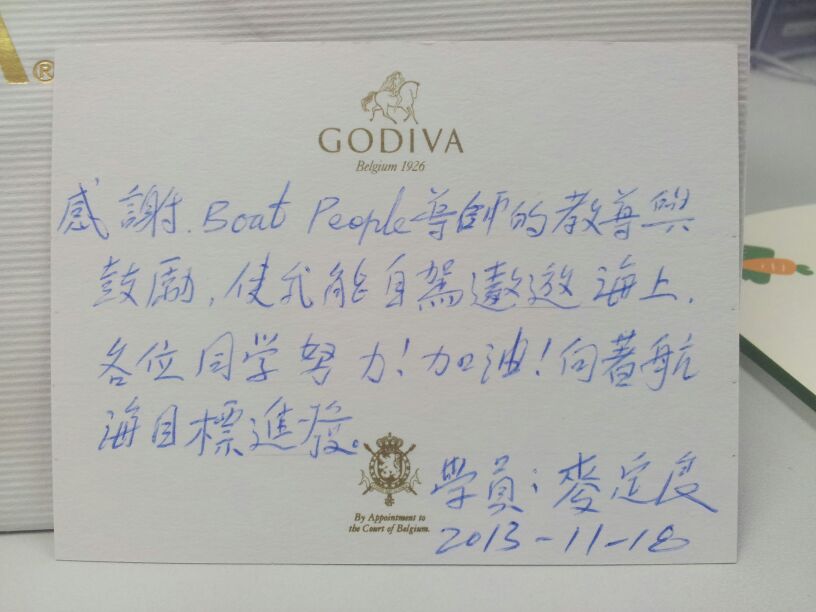 A®
GODIVA
Belgium 1926
感謝.Boat People導師的教導與
鼓勵,使我能自駕遨遊海上.
各位同学努力!加油!向着航
海目標進發。
學員:麥定度
2013-11-18
By Appointment to
the Court of Belgium.